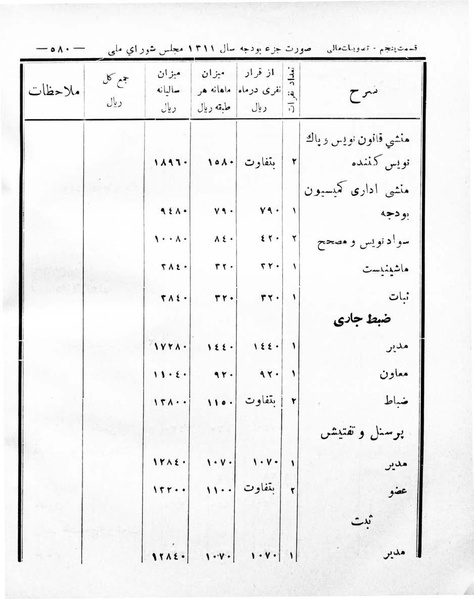 قسمت پنجم - تصویبات مالی صورت جزء بودجه سال ۱۳۱۱ مجلس شورای ملی —۵۸۰—
شرح تعداد نفرات از قرار نفری در ماه ریال میزان ماهانه هر طبقه ریال میزان سالیانه ریال جمع کل ریال ملاحظات
منشی قانون نویس و پاك
نویس کننده ۲ بتفاوت ۱۵۸۰ ۱۸۹۶۰
منشی اداری کمیسیون
بودجه ۱ ۷۹۰ ۷۹۰ ۹٤۸۰
سواد نویس و مصحح ۲ ٤۲۰ ۸٤۰ ۱۰۰۸۰
ماشینیست ۱ ۳۲۰ ۳۲۰ ۳۸٤۰
ثبات ۱ ۳۲۰ ۳۲۰ ۳۸٤۰
ضبط جاری
مدیر ۱ ۱٤٤۰ ۱٤٤۰ ۱۷۲۸۰
معاون ۱ ۹۲۰ ۹۲۰ ۱۱۰٤۰
ضباط ۲ بتفاوت ۱۱۵۰ ۱۳۸۰۰
پرسنل و تفتیش
مدیر ۱ ۱۰۷۰ ۱۰۷۰ ۱۲۸٤۰
عضو ۲ بتفاوت ۱۱۰۰ ۱۳۲۰۰
ثبت
مدیر ۱ ۱۰۷۰ ۱۰۷۰ ۱۲۸٤۰